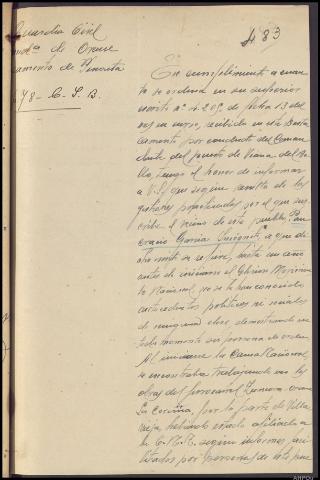 Guardia Civil
de Orense
Destacamento de Penouta
678 - C. S. B.
483
En cumplimiento a cuan
to se ordena en su superior
escrito nº 4.209 de fecha 13 del
mes en curso, recibido en este Desta
camento por conducto del Coman
dante del puesto de Viana del Bo
llo, tengo el honor de informar
a V.S. que según resulta de las
gestiones practicadas por el que sus
cribe el vecino de este pueblo,
García a que di
cho escrito se refiere, hasta un año
antes de iniciarse el Glorioso Movimien
to Nacional, no se le han conocido
antecedentes políticos ni sociales
de ninguna clase, demostrando en
todo momento ser persona de orden.
Al iniciarse la Causa Nacional,
se encontraba trabajando en las
obras del ferrocarril Zamora Orense
La Coruña, por la parte de Villa
vieja, habiendo estado afiliado a
la C.N.T. según informes faci
litados por personas de este pue
AHPOU